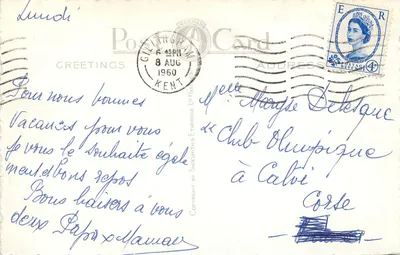 Lundi
Post Card
GREETINGS ADDRESS
GILLINGHAM
6 PM
8 AUG
1960
KENT
E R
4D
Pour nous bonnes
Vacances pour vous
je vous le souhaite égale
ment et bons repos
Bons baisers à vous
deux Papa x Maman
Melle Maryse Delesque
Club Olympique
à Calvi
Corse